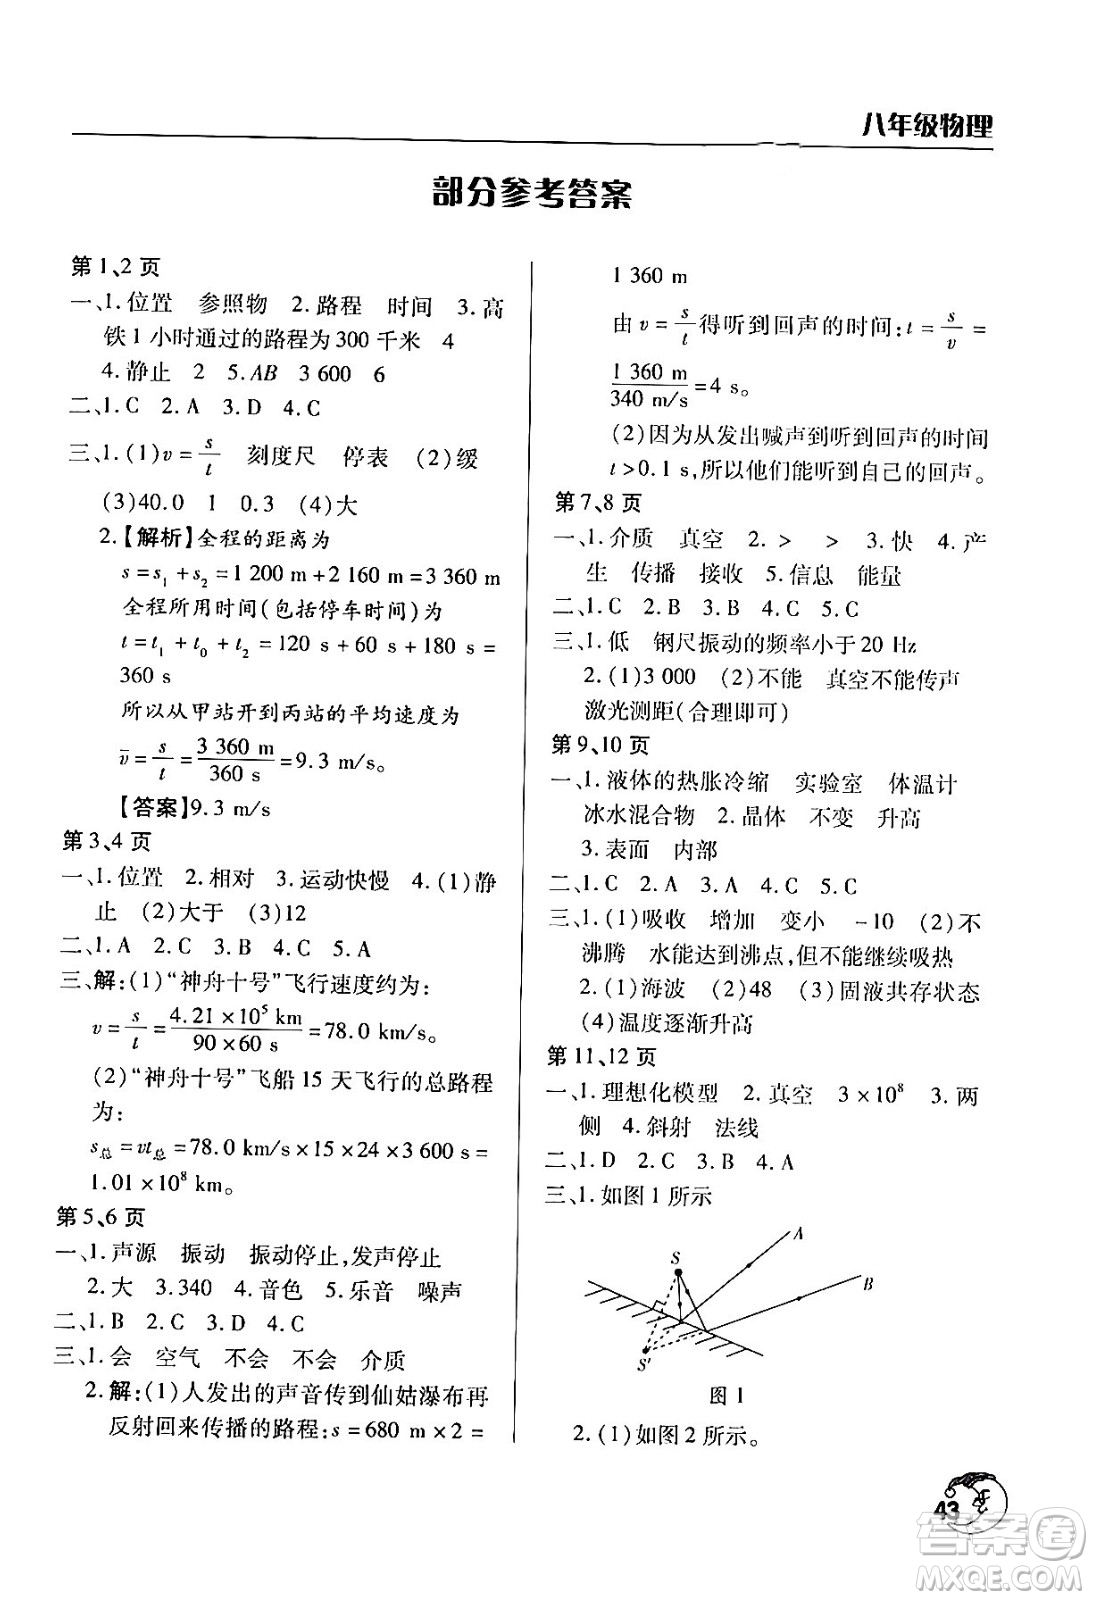 八年级物理
部分参考答案
第1、2页
一、1.位置 参照物 2.路程 时间 3.高
铁1小时通过的路程为300千米 4
4.静止 2 5.AB 3 600 6
二、1.C 2.A 3.D 4.C
三、1.(1)v=s/t 刻度尺 停表 (2)缓
(3)40.0 1 0.3 (4)大
2.【解析】全程的距离为
s=s₁+s₂=1 200 m+2 160 m=3 360 m
全程所用时间(包括停车时间)为
t=t₁+t₀+t₂=120 s+60 s+180 s=
360 s
所以从甲站开到丙站的平均速度为
v̄=s/t=3 360 m/360 s=9.3 m/s。
【答案】9.3 m/s
第3、4页
一、1.位置 2.相对 3.运动快慢 4.(1)静
止 (2)大于 (3)12
二、1.A 2.C 3.B 4.C 5.A
三、解:(1)“神舟十号”飞行速度约为:
v=s/t=4.21×10⁵ km/90×60 s=78.0 km/s。
(2)“神舟十号”飞船15天飞行的总路程
为:
s总=vt总=78.0 km/s×15×24×3 600 s=
1.01×10⁸ km。
第5、6页
一、1.声源 振动 振动停止,发声停止
2.大 3.340 4.音色 5.乐音 噪声
二、1.B 2.C 3.D 4.C
三、1.会 空气 不会 不会 介质
2.解:(1)人发出的声音传到仙姑瀑布再
反射回来传播的路程:s=680 m×2=
1 360 m
由v=s/t得听到回声的时间:t=s/v=
1 360 m/340 m/s=4 s。
(2)因为从发出喊声到听到回声的时间
t>0.1 s,所以他们能听到自己的回声。
第7、8页
一、1.介质 真空 2.> > 3.快 4.产
生 传播 接收 5.信息 能量
二、1.C 2.B 3.A 4.C 5.C
三、1.低 钢尺振动的频率小于20 Hz
2.(1)3 000 (2)不能 真空不能传声
激光测距(合理即可)
第9、10页
一、1.液体的热胀冷缩 实验室 体温计
冰水混合物 2.晶体 不变 升高
3.表面 内部
二、1.C 2.B 3.A 4.C 5.C
三、1.(1)吸收 增加 变小 -10 (2)不
沸腾 水能达到沸点,但不能继续吸热
2.(1)海波 (2)48 (3)固液共存状态
(4)温度逐渐升高
第11、12页
一、1.理想化模型 2.真空 3×10⁸ 3.两
侧 4.斜射 法线
二、1.D 2.C 3.B 4.A
三、1.如图1所示
A
S
B
S′
图1
2.(1)如图2所示。
43
答案卷
MXQE.COM